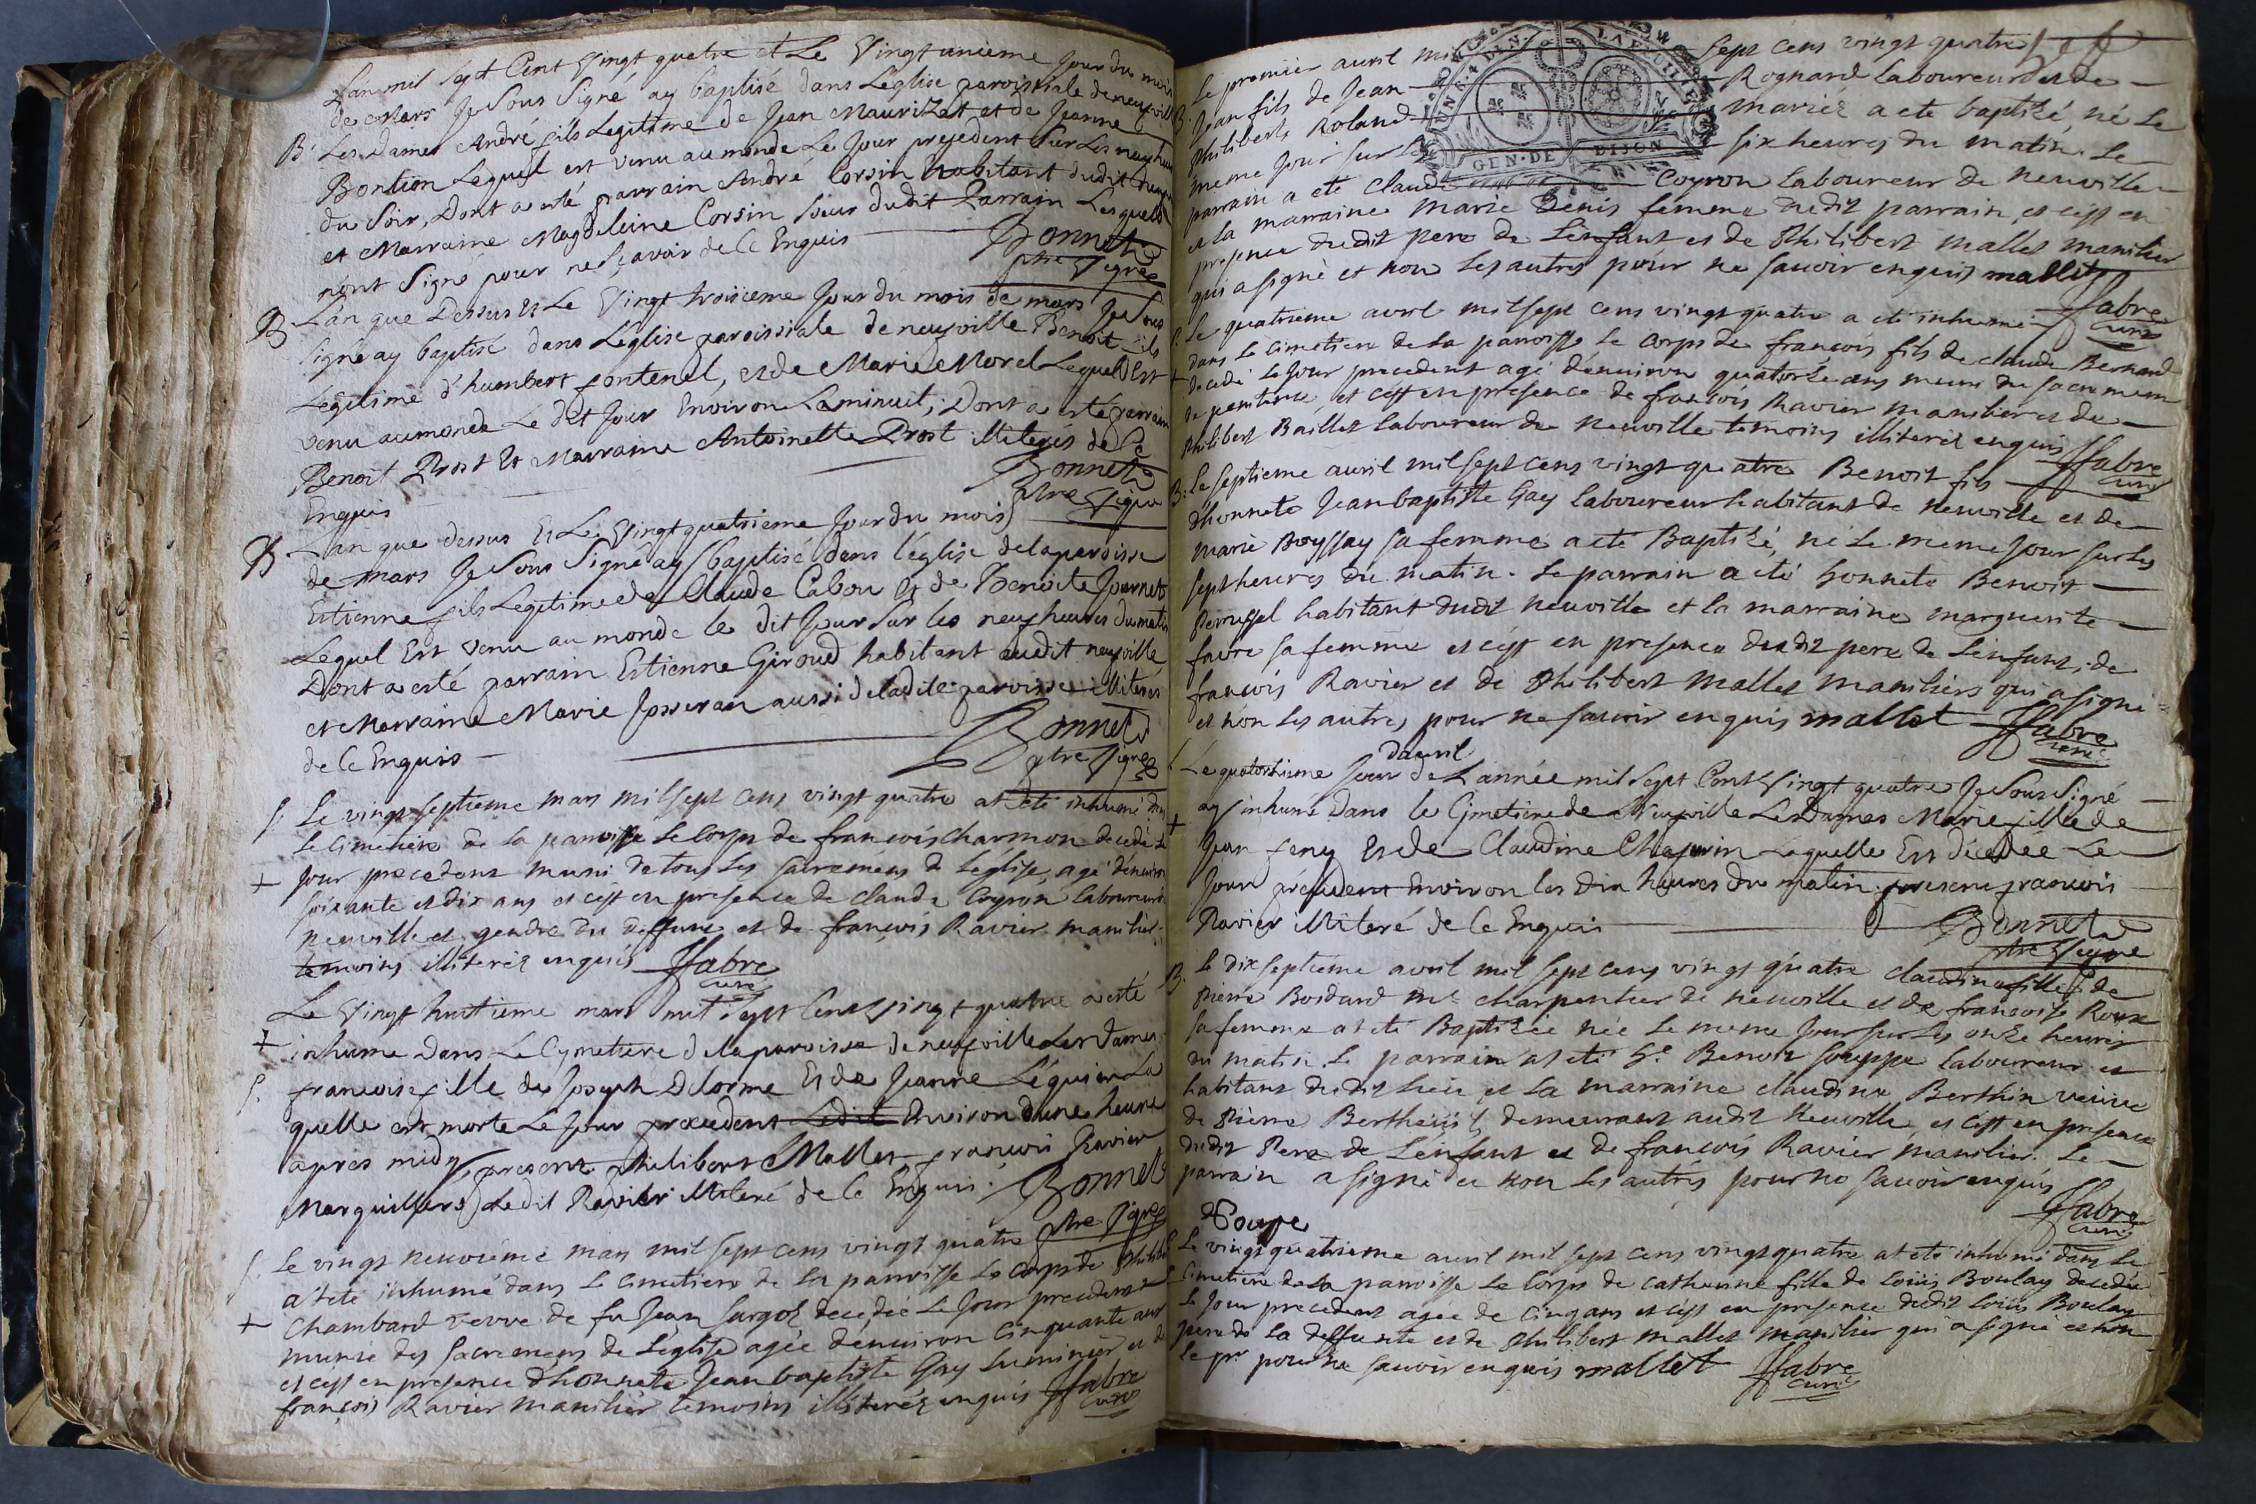 L'an mil sept Cent Vingt quatre et Le Vingt unieme Jour du mois
de Mars Je Sous Signé ay baptisé dans L'eglise paroissiale de neufville
B. Les Dames André fils Legitime de Jean Maurizet et de Jeanne
Bontion Lequel est venu au monde Le Jour precedent Sur Les neuf heures
du Soir, Dont a esté parrain André Corsin habitant dudit
et Marraine Magdeleine Corsin soeur dudit Parrain Lesquels
n'ont Signé pour ne Sçavoir de Ce Enquis Bonnet
ptre Vigre
B L'an que Dessus Et Le Vingt troisieme Jour du mois de mars Je Sous
signé ay baptisé dans L'eglise paroissiale de neufville Benoit fils
Legitime d'humbert fontenel, et de Marie Morel Lequel Est
venu au monde Le dit Jour Environ La minuit, Dont a esté parrain
Benoit Prost Et Marraine Antoinette Prost illiterés de Ce
Enquis Bonnet
ptre Vigre
B L'an que dessus Et Le Vingt quatrieme Jour du mois
de mars Je Sous Signé ay baptisé dans l'église de la paroisse
Estienne fils Legitime de Claude Cabou Et de Benoite Journet
Lequel Est venu au monde le dit Jour Sur les neuf heures du matin
Dont a esté parrain Estienne Giroud habitant audit neufville
et Marraine Marie Josseran aussi de ladite paroisse illiterés
de Ce Enquis Bonnet
ptre Vigre
S. Le vingt septieme mars mil sept cens vingt quatre at eté inhumé dans
le Cimetiere de la parroisse le Corps de francois charmon decedé le
+ Jour precedent muni de tous les sacremens de l'eglise, agé d'environ
soixante et dix ans et c'est en presence de claude Coyron laboureur de
neuville et gendre du deffunt et de françois Ravier manilier
temoins illiterez enquis ffabre
curé
Le Vingt huitieme mars mil Sept Cent Vingt quatre a esté
+ inhumé Dans Le Cymetiere de la paroisse de neufville Les Dames
S. francoise fille de Joseph Delorme Et de Jeanne Léquier La
quelle est morte Le Jour precedent Ledit Environ d'une heure
apres midy, present philibert Mallet francois Ravier
Marguilliers Ledit Ravier illiteré de Ce Enquis. Bonnet
ptre Vigre
S. Le vingt neuvieme mars mil sept cens vingt quatre
a'teté inhumé dans le cimetiere de la parroisse le corps de Philiberte
+ Chambard vevve de fu Jean Surgot decedée le Jour precedent
munie des sacremens de l'eglise agée d'environ cinquante ans
et c'est en presence d'honnete Jean baptiste Gay luminier et de
françois Ravier manilier temoins illiterez enquis ffabre
curé
Le premier avril mil sept cens vingt quatre
B. Jean fils de Jean Rognard laboureur et de
Philiberte Roland mariéz a eté baptizé, né le
meme Jour sur les six heures du matin. Le
parrain a eté Claude Coyron laboureur de neuville
et la marraine marie Denis femme dudit parrain, et c'est en
presence dudit pere de l'enfant et de Philibert mallet manilier
qui a signé et non les autres pour ne savoir enquis mallet
ffabre
curé
GEN·DE DIJON
S. Le quatrieme avril mil sept cens vingt quatre a eté inhumé
dans le cimetiere de la parroisse le corps de françois fils de claude Bernard
+ decedé le Jour precedent agé d'environ quatorze ans muni du sacrement
de penitence, et c'est en presence de françois Ravier manilier et de
Philibert Baillet laboureur de neuville temoins illiterez enquis ffabre
curé
B. Le septieme avril mil sept cens vingt quatre Benoit fils
d'honnete Jean baptiste Gay laboureur habitant de neuville et de
marie Boyssay sa femme a eté Baptizé, né le meme Jour sur les
sept heures du matin. Le parrain a eté honnete Benoit
Perrussel habitant dudit neuville et la marraine marguerite
favre sa femme et c'est en presence dudit pere de l'enfant, de
françois Ravier et de Philibert mallet maniliers qui a signé
et non les autres pour ne savoir enquis mallet ffabre
curé
d'avril
Le quatorsieme Jour de L'année mil Sept Cent Vingt quatre Je Sous Signé
+ ay inhumé dans le Cymetiere de Neufville Les Dames Marie fille de
Jean feny Et de Claudine Chapuin Laquelle Est décedée Le
Jour précedent Environ les dix heures du matin present francois
Ravier illiteré de Ce Enquis Bonnet
ptre Vigre
B. Le dix septieme avril mil sept cens vingt quatre claudine fille de
Pierre Bordard me charpentier de neuville et de francoise Roux
sa femme at eté Baptizée née le meme Jour sur les onze heures
du matin. Le parrain at eté he Benoit Souppe laboureur et
habitant dudit lieu et la marraine claudine Berthin veuve
de Pierre Bertheüil demeurant audit Neuville, et c'est en presence
dudit Pere de l'enfant et de francois Ravier manilier. Le
parrain a signé et non les autres pour ne savoir enquis
Soupe ffabre
curé
S. Le vingt quatrieme avril mil sept cens vingt quatre at eté inhumé dans le
Cimetiere de la parroisse le corps de catherine fille de Loüis Boulay decedée
le Jour precedent agée de cinq ans et c'est en presence dudit Loüis Boulay
pere de la deffunte et de Philibert mallet manilier qui a signé et non
le pr pour ne savoir enquis mallet ffabre
curé